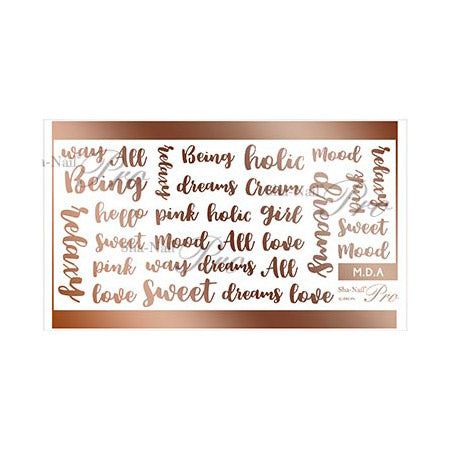 way All
Being
relaxy
relaxy
Being holic
dreams Cream
hello pink holic Girl
Sweet Mood All love
pink way dreams All
love Sweet dreams love
Mood
pink
relaxy
dreams
Sweet
Mood
M.D.A
Sha-Nail
Pro
Sha-Nail
Pro
Sha-Nail
Pro